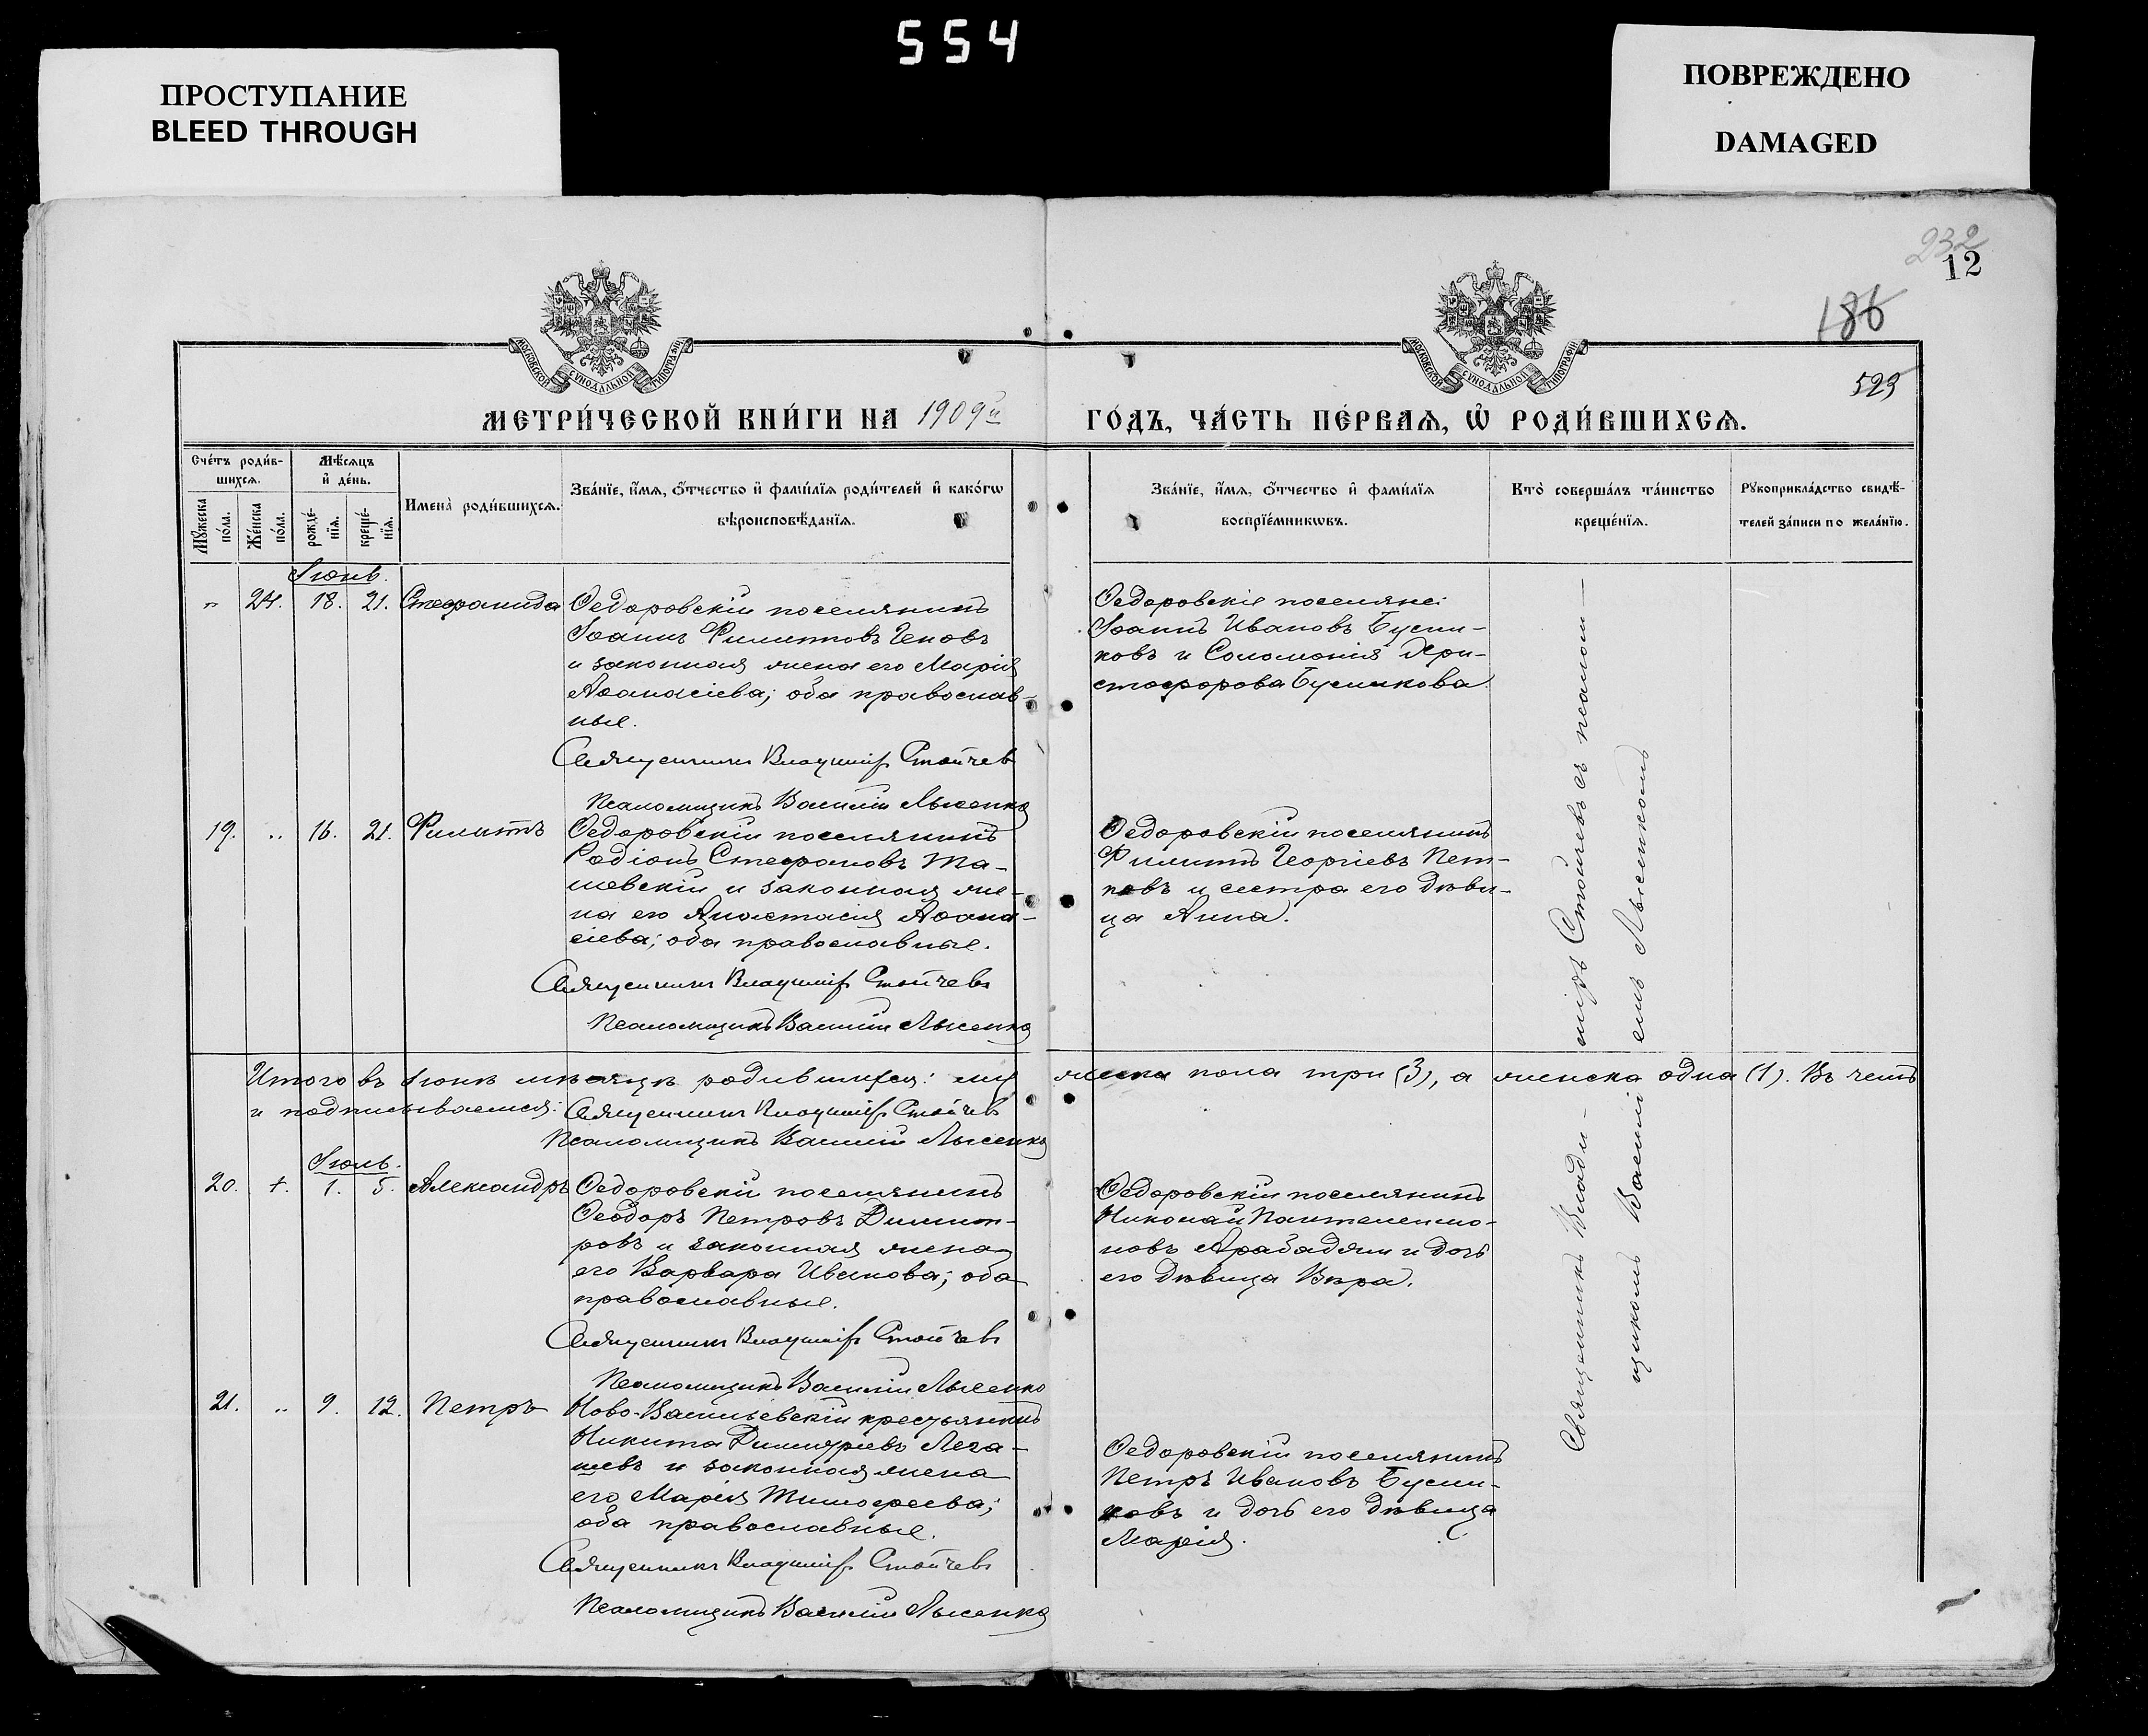 554
ПРОСТУПАНИЕ
BLEED THROUGH
ПОВРЕЖДЕНО
DAMAGED
232
12
186
523
МОСКОВСКОЙ СУНОДАЛЬНОЙ ТИПОГРАФІИ
МОСКОВСКОЙ СУНОДАЛЬНОЙ ТИПОГРАФІИ
МЕТРИ́ЧЕСКОЙ КНИ́ГИ НА 1909й ГО́ДЪ, ЧА́СТЬ ПЕ́РВАѦ, Ѡ҆ РОДИ́ВШИХСѦ.
Сче́тъ роди́в-
шихсѧ.
Мѣ́сѧцъ
и҆ де́нь.
Мꙋжеска по́ла.
Же́нска по́ла.
рожде́-нїѧ.
креще́-нїѧ.
Имена̀ роди́вшихсѧ.
Зва́нїе, и҆́мѧ, ѻ҆́тчество и҆ фами́лїѧ роди́телей и҆ како́гѡ
вѣроисповѣ́данїѧ.
Зва́нїе, и҆́мѧ, ѻ҆́тчество и҆ фами́лїѧ
воспрїе́мникѡвъ.
Кто̀ соверша́лъ та́инство
креще́нїѧ.
Рꙋкоприкла́дство свидѣ́-
телей за́писи по жела́нїю.
Іюнь.
" 24. 18. 21. Стефанида
Ѳедоровскій поселянинъ
Іоаннъ Филипповъ Геновъ
и законная жена его Марія
Аѳанасіева; оба православ-
ные.
Священникъ Владиміръ Стойчевъ
Псаломщикъ Василій Лысенко
Ѳедоровскіе поселяне:
Іоаннъ Ивановъ Бусли-
ковъ и Соломонія Хри-
стофорова Бусликова.
19. " 16. 21. Филиппъ
Ѳедоровскій поселянинъ
Родіонъ Стефановъ Та-
шевскій и законная же-
на его Анастасія Аѳана-
сіева; оба православные.
Священникъ Владиміръ Стойчевъ
Псаломщикъ Василій Лысенко
Ѳедоровскій поселянинъ
Филиппъ Георгіевъ Пет-
ковъ и сестра его дѣви-
ца Анна.
Итого въ Іюнѣ мѣсяцѣ родившихся: мужеска пола три (3), а женска одна (1). Въ чемъ
и подписываемся: Священникъ Владиміръ Стойчевъ
Псаломщикъ Василій Лысенко
Іюль.
20. 1. 5. Александръ
Ѳедоровскій поселянинъ
Ѳеодоръ Петровъ Димит-
ровъ и законная жена
его Варвара Иванова; оба
православные.
Священникъ Владиміръ Стойчевъ
Псаломщикъ Василій Лысенко
Ѳедоровскій поселянинъ
Николай Пантелеимо-
новъ Арабаджи и дочь
его дѣвица Вѣра.
21. " 9. 12. Петръ
Ново-Васильевскій крестьянинъ
Никита Димитріевъ
его Марія Тимофеева;
оба православные.
Священникъ Владиміръ Стойчевъ
Псаломщикъ Василій Лысенко
Ѳедоровскій поселянинъ
Петръ Ивановъ Бусли-
ковъ и дочь его дѣвица
Марія.
Священникъ Влади-
міръ Стойчевъ съ псалом-
щикомъ Василі-
емъ Лысенкомъ